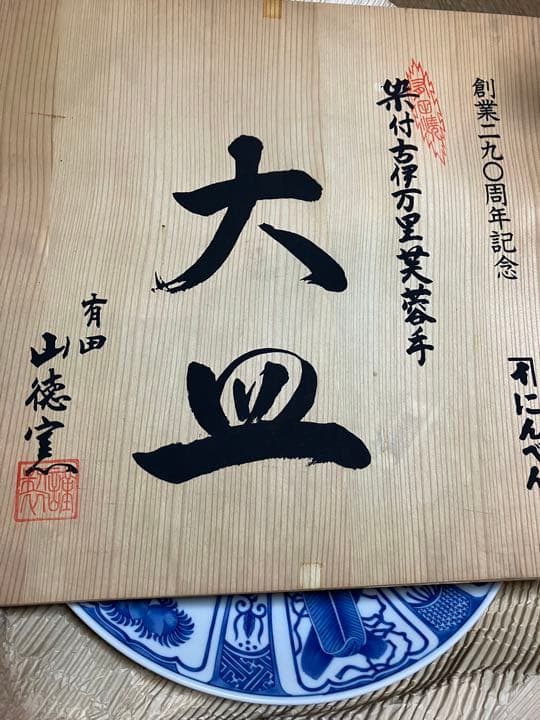 創業二九〇周年記念
にんべん
有田焼
染付古伊万里芙蓉手
大皿
有田
山徳窯
謹製